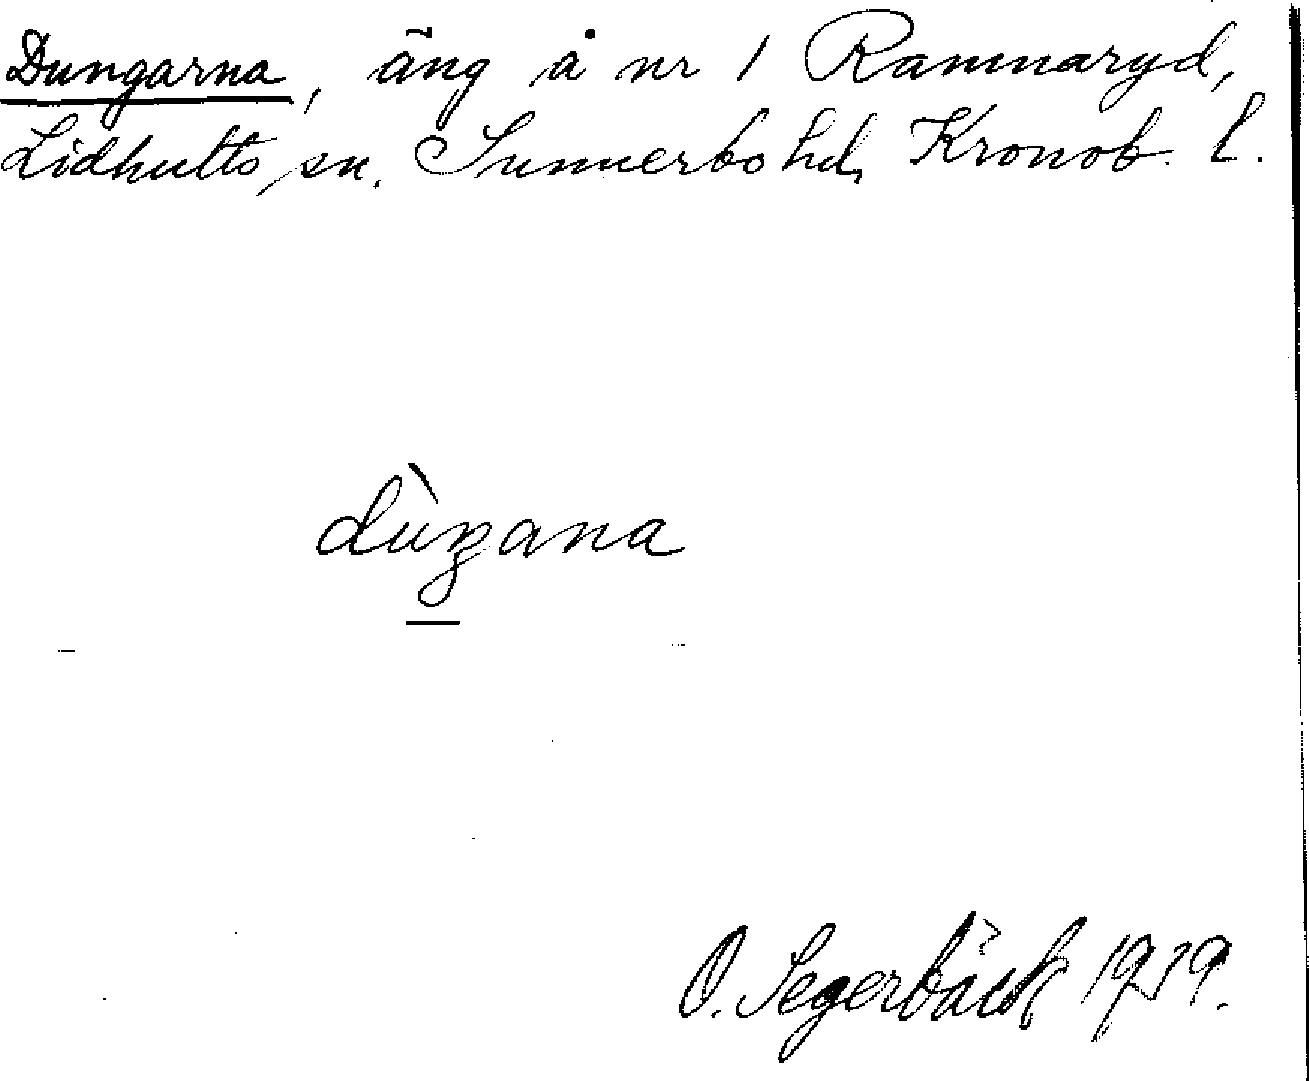 Dungarna, äng å nr 1 Ramnaryd,
Lidhults sn. Sunnerbo hd, Kronob. l.
dùŋana
O. Segerbäck 1939.